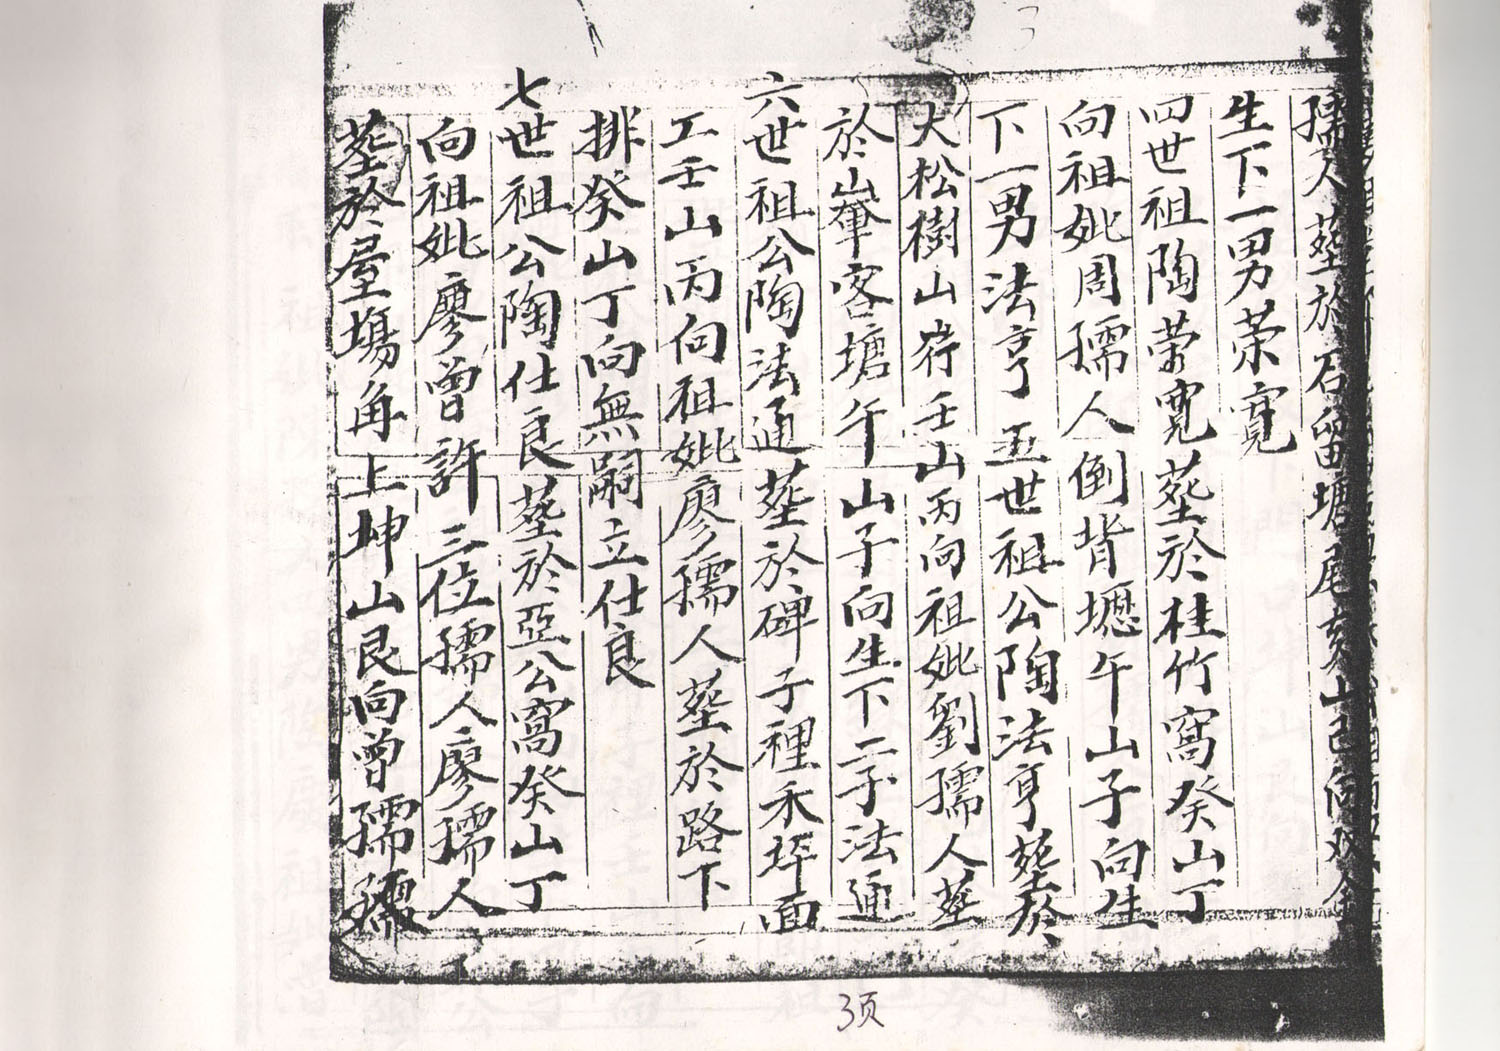 孺人葬於石留塘尾亥山巳向
生下一男荣寬
四世祖陶荣寛葬於桂竹窩癸山丁
向祖妣周孺人倒背壢午山子向生
下一男法亨 五世祖公陶法亨葬於
大松樹山岃壬山丙向祖妣劉孺人葬
於山輋客塘午山子向生下二子法通
六世祖公陶法通葬於碑子裡禾坪面
工壬山丙向祖妣廖孺人葬於路下
排癸山丁向無嗣立仕良
七世祖公陶仕良葬於亞公窩癸山丁
向祖妣廖曾許三位孺人廖孺人
葬於屋塲角上坤山艮向曾孺
3页